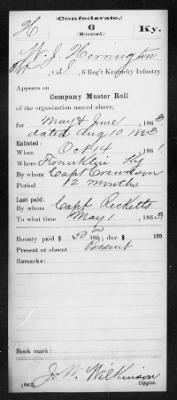 (Confederate.)
H 6 Ky.
(Mounted.)
W. J. Herrington
Co. , 6 Reg't Kentucky Infantry.
Appears on
Company Muster Roll
of the organization named above,
for May & June , 1863
dated Aug 10 1863
Enlisted:
When Oct 14 , 1861.
Where Franklin Ky
By whom Capt
Period 12 months
Last paid:
By whom Capt Ricketts
To what time May 1 , 1863.
Bounty paid $ 50.00 100; due $ 100
Present or absent Present
Remarks:
Book mark:
J. W. Wilkinson
(642) Copyist.